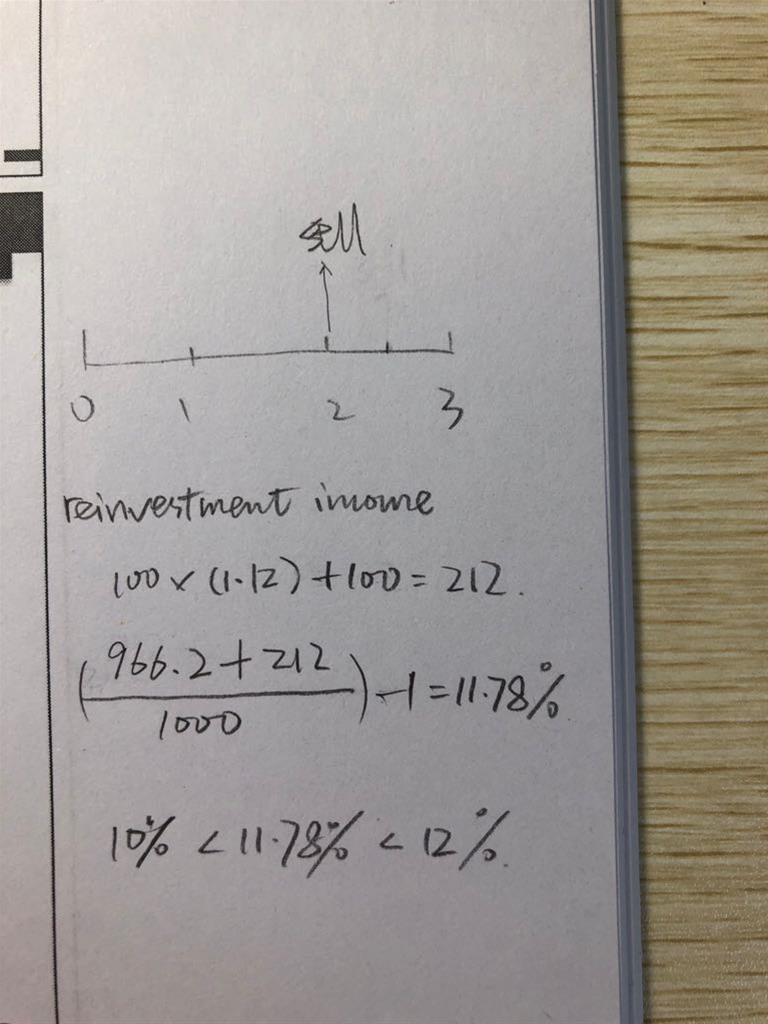 sell
0 1 2 3
reinvestment income
100 × (1.12) + 100 = 212.
(966.2 + 212 / 1000) - 1 = 11.78%
10% < 11.78% < 12%.